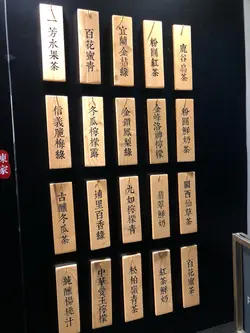 一芳水果茶
百花蜜青
宜蘭金桔綠
粉圓紅茶
鹿谷烏茶
信義脆梅綠
冬瓜檸檬露
金鑽鳳梨綠
金峰洛神檸檬
粉圓鮮奶茶
古釀冬瓜茶
埔里百香綠
九如檸檬青
翡翠鮮奶
關西仙草茶
純釀楊桃汁
中華愛玉檸檬
松柏嶺青茶
紅茶鮮奶
百花蜜茶